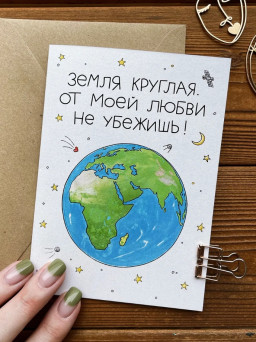 ЗЕМЛЯ КРУГЛАЯ.
ОТ МОЕЙ ЛЮБВИ
НЕ УБЕЖИШЬ!